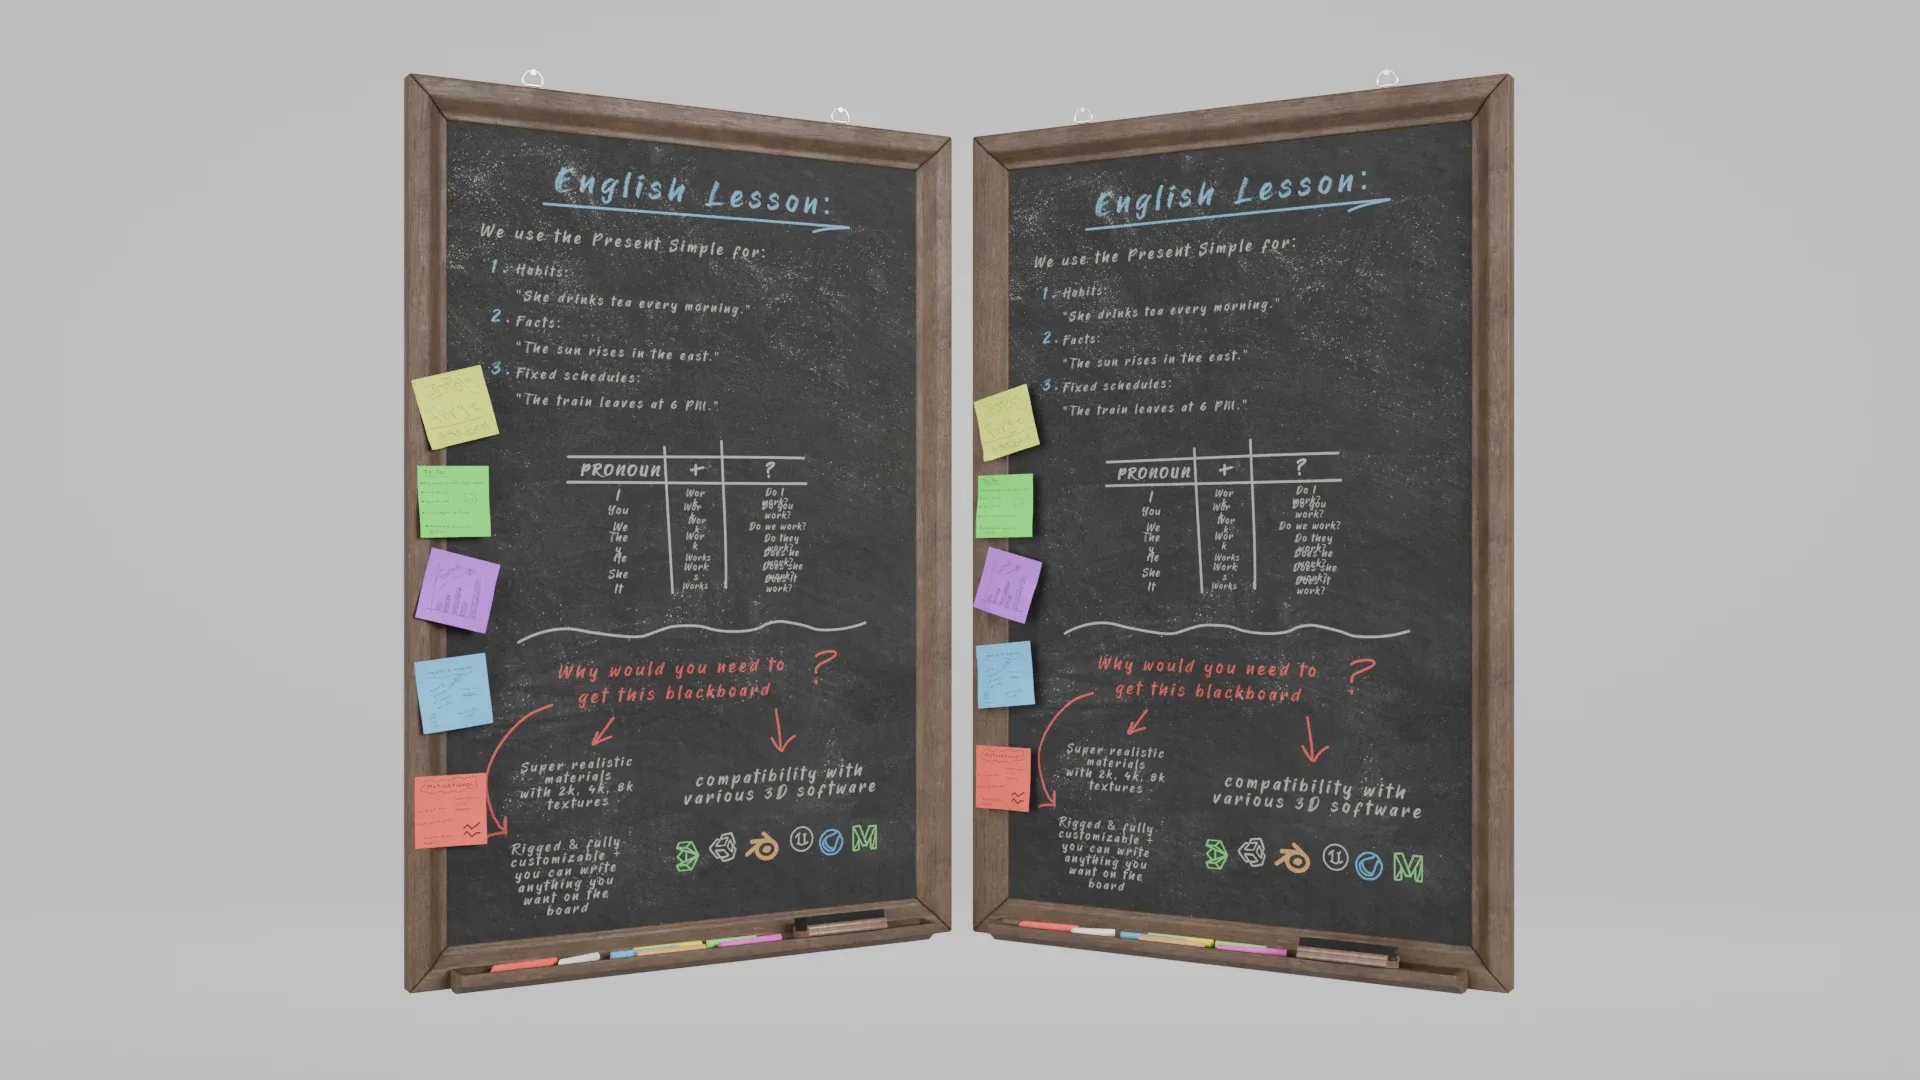 English Lesson:
We use the Present Simple for:
1. Habits:
"She drinks tea every morning."
2. Facts:
"The sun rises in the east."
3. Fixed schedules:
"The train leaves at 6 PM."
PRONOUN + ?
I Wor Do I
k work?
You Wor Do you
k work?
We Wor Do we work?
k
The Wor Do they
y k work?
He Works Does he
work?
She Work Does she
s work?
It Works Does it
work?
Why would you need to ?
get this blackboard
Super realistic
materials
with 2k, 4k, 8k
textures
compatibility with
various 3D software
Rigged & fully
customizable +
you can write
anything you
want on the
board
To Do:
Motivational
English Lesson:
We use the Present Simple for:
1. Habits:
"She drinks tea every morning."
2. Facts:
"The sun rises in the east."
3. Fixed schedules:
"The train leaves at 6 PM."
PRONOUN + ?
I Wor Do I
k work?
You Wor Do you
k work?
We Wor Do we work?
k
The Wor Do they
y k work?
He Works Does he
work?
She Work Does she
s work?
It Works Does it
work?
Why would you need to ?
get this blackboard
Super realistic
materials
with 2k, 4k, 8k
textures
compatibility with
various 3D software
Rigged & fully
customizable +
you can write
anything you
want on the
board